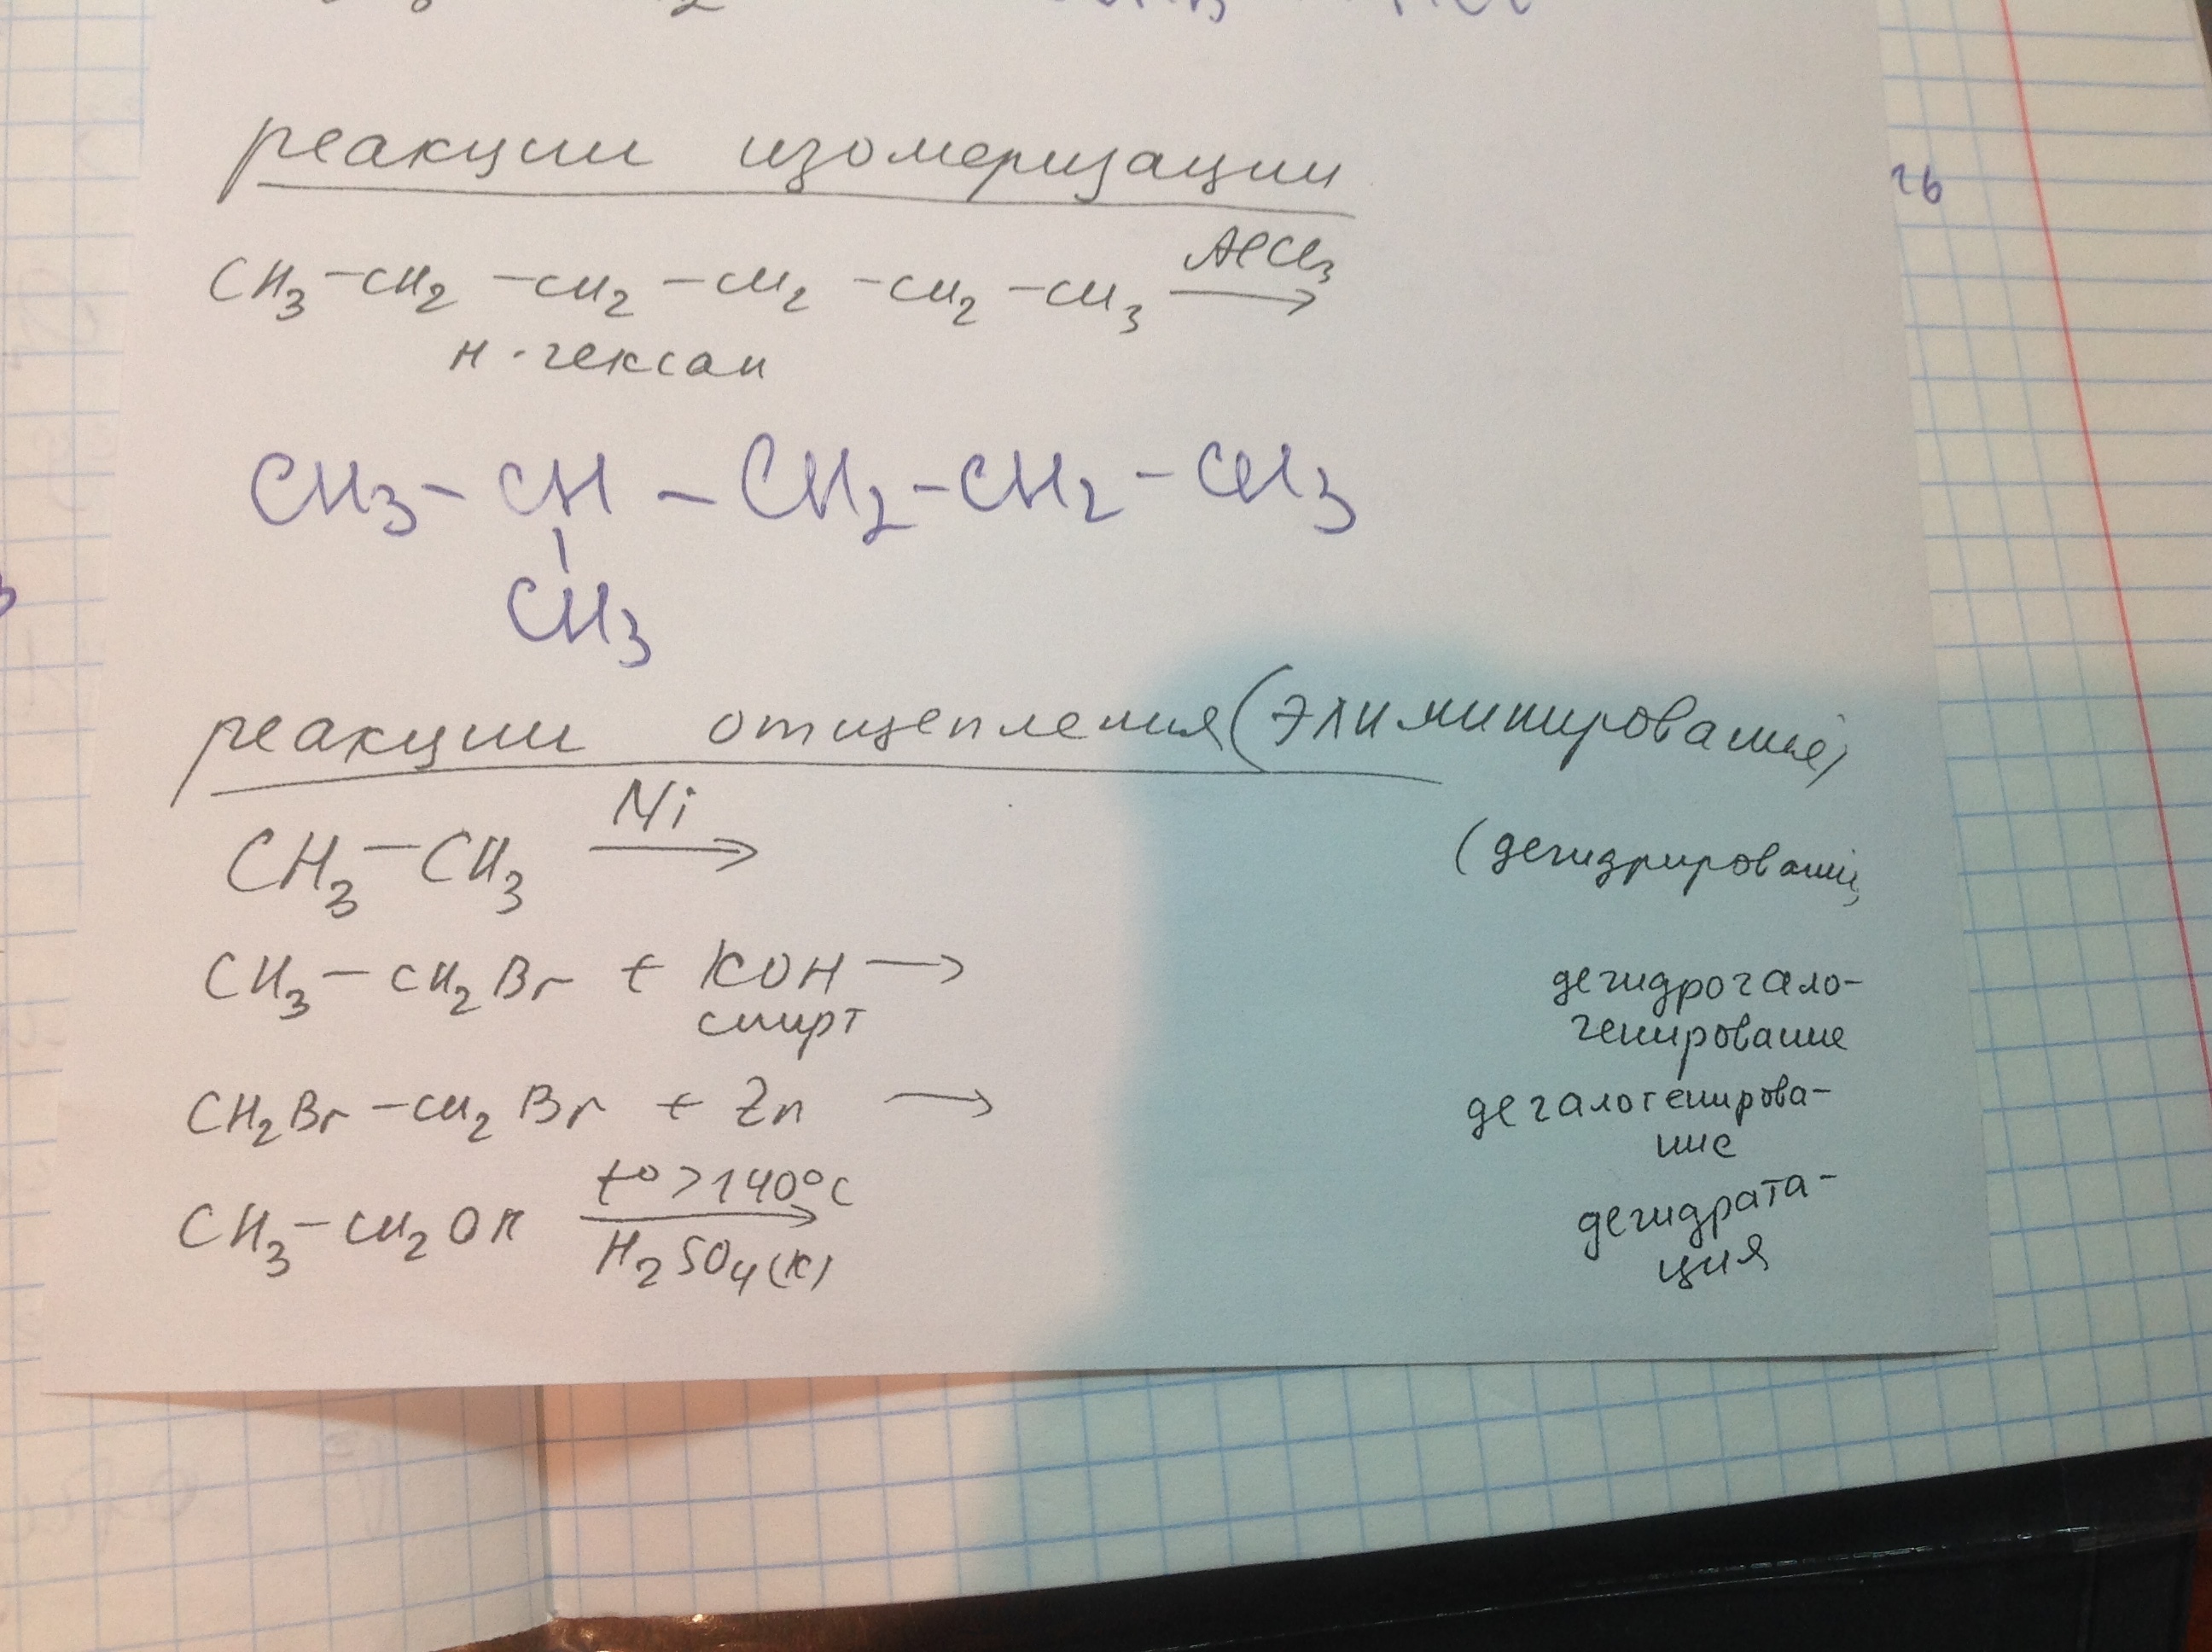 реакции изомеризации
CH₃–CH₂–CH₂–CH₂–CH₂–CH₃ AlCl₃ →
н-гексан
CH₃–CH–CH₂–CH₂–CH₃
|
CH₃
реакции отщепления (элиминирования)
CH₃–CH₃ Ni → (дегидрирование,
CH₃–CH₂Br + KOH → дегидрогало-
спирт генирование
CH₂Br–CH₂Br + Zn → дегалогенирова-
ние
CH₃–CH₂OH t°>140°C → дегидрата-
H₂SO₄(к) ция